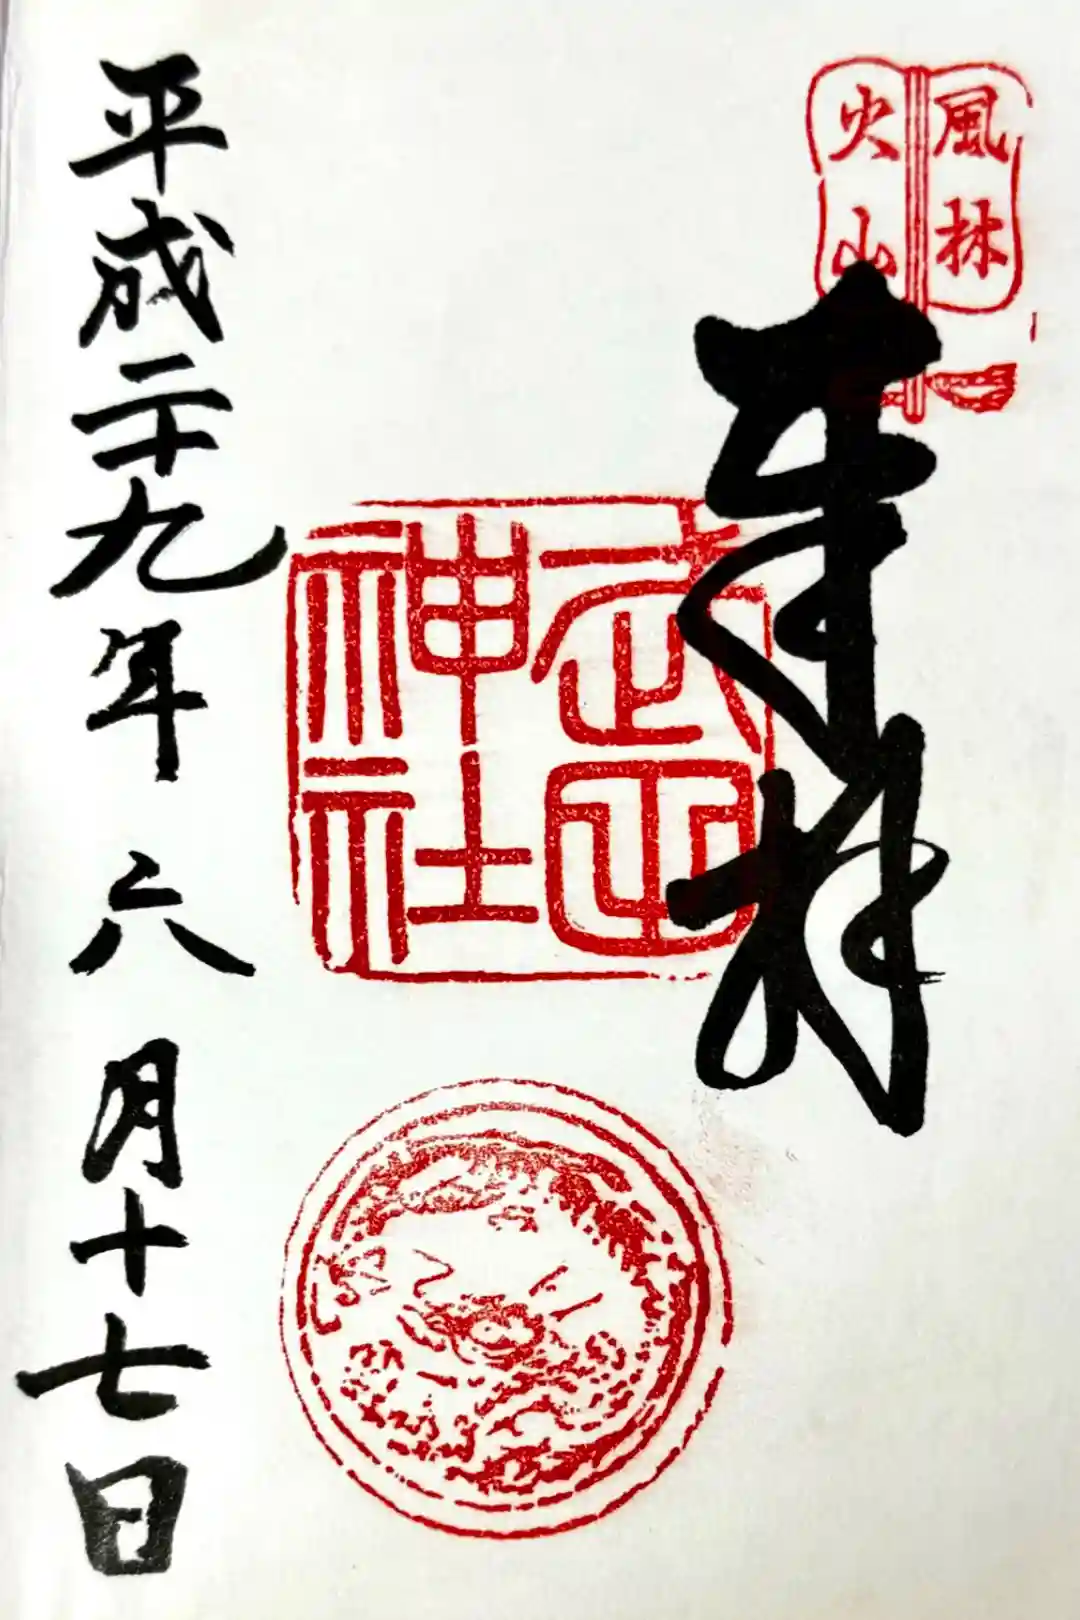 風林
火山
奉拝
武田
神社
平成二十九年六月十七日